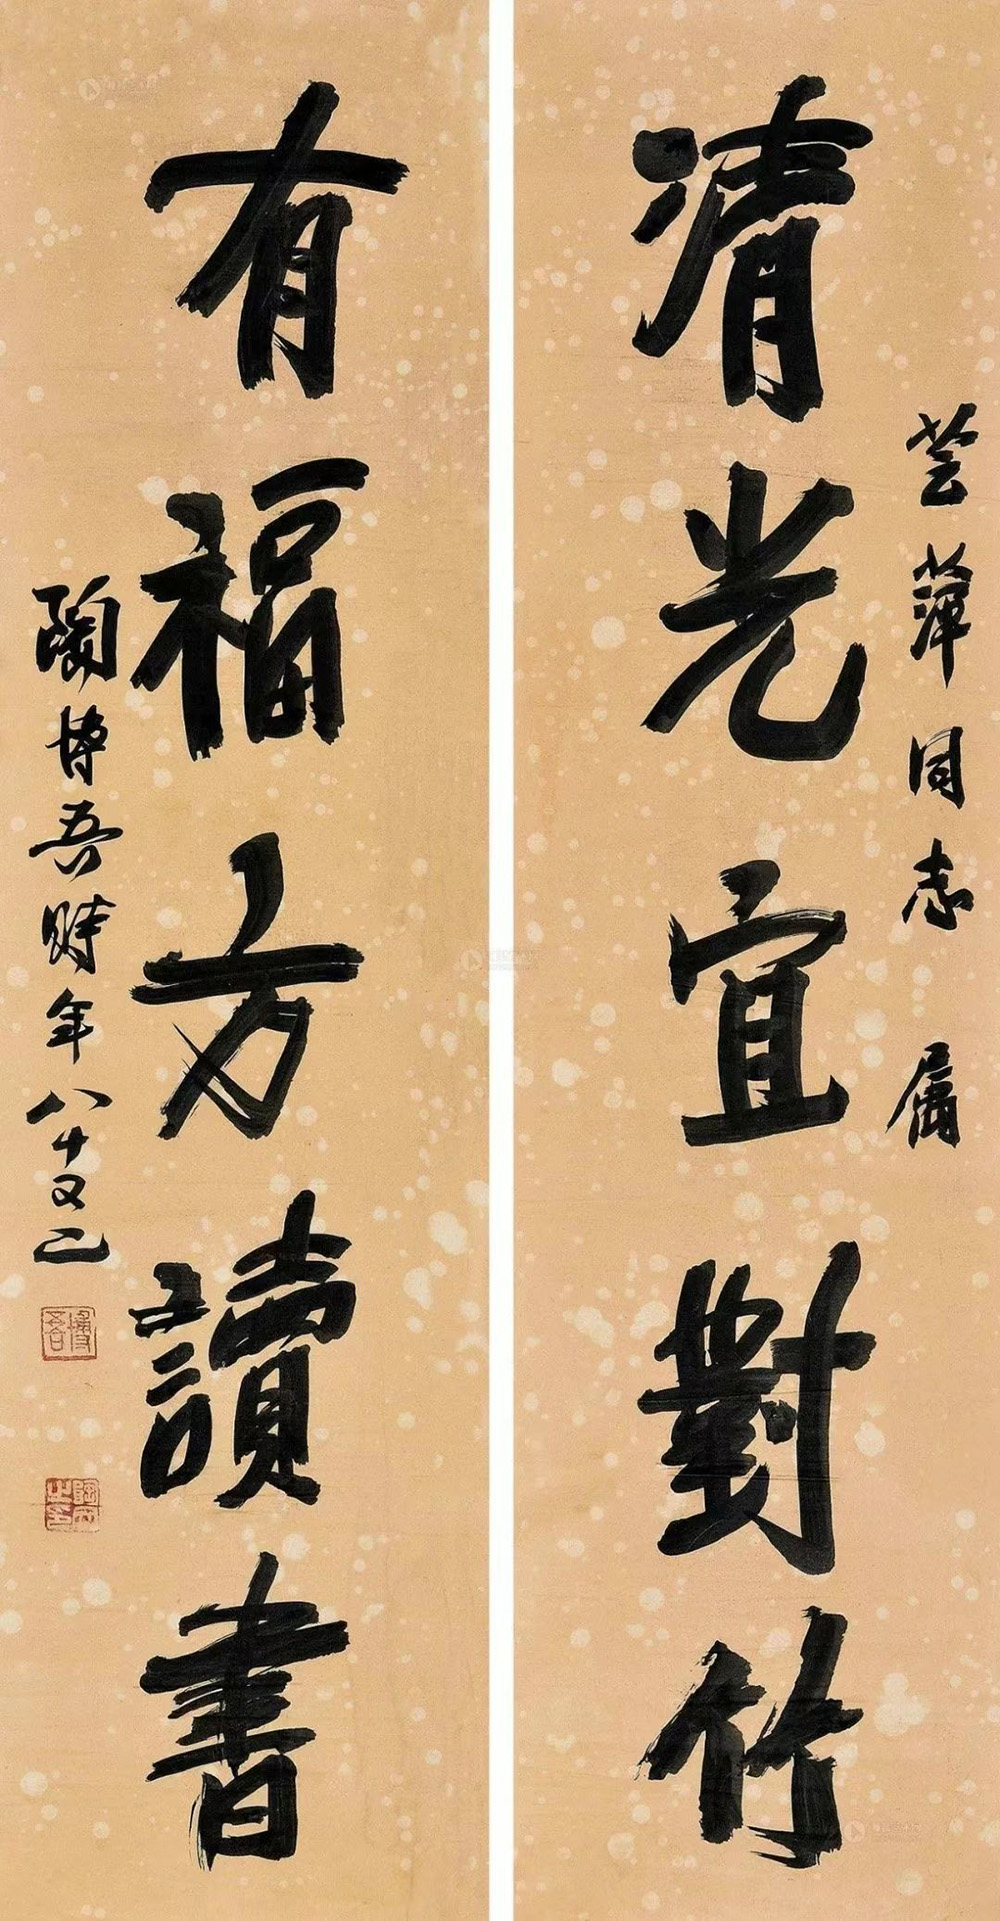 芸萍同志属
清光宜對竹
有福方讀書
陶博吾時年八十又二
博吾